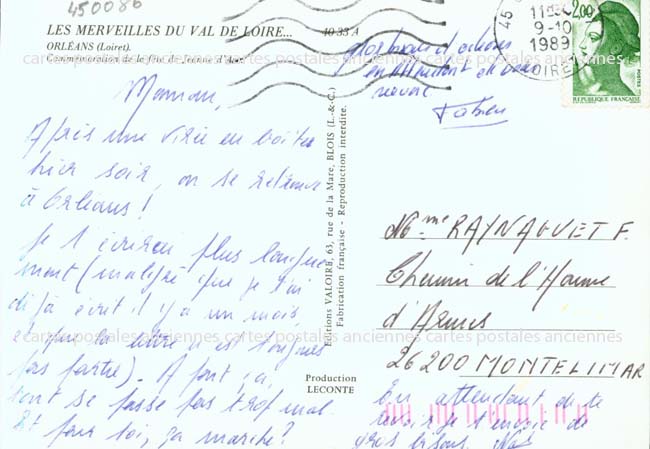 450086
LES MERVEILLES DU VAL DE LOIRE...
ORLÉANS (Loiret).
Commémoration de la fête de Jeanne d'Arc.
40 33 A
45
9-10
1989
LOIRET
2,00
REPUBLIQUE FRANÇAISE
POSTES
Gros bisous d'orléans
en attendant de vous
revoir
Fabien
Maman,
Après une virée en boîtes
hier soir, on se retrouve
à Orléans !
Je t'écrirai plus longue
ment (malgré que je t'ai
déjà écrit il y a un mois
et que la lettre n'est toujours
pas partie). A part ça,
tout se passe pas trop mal.
Et pour toi, ça marche ?
Editions VALOIRE, 63, rue de la Mare, BLOIS (L.-&-C.)
Fabrication française - Reproduction interdite.
Production
LECONTE
Mme RAYNAGUET F.
Chemin de l'Homme
d'Armes
26200 MONTELIMAR
En attendant de te
revoir je t'envoie de
gros bisous.
cartes postales anciennes cartes postales anciennes cartes postales anciennes
cartes postales anciennes cartes postales anciennes cartes postales anciennes